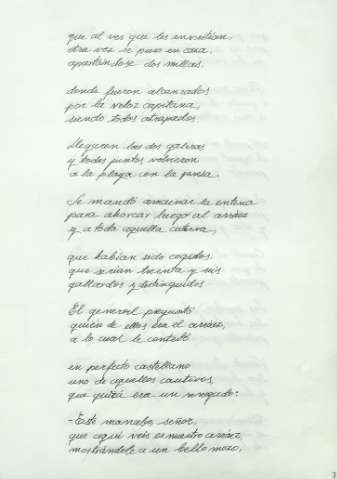 que al ver que los envestían
otra vez se puso en caza,
apartándose dos millas.
donde fueron alcanzados
por la veloz capitana,
siendo todos atrapados.
Llegaron las dos galeras
y todos juntos volvieron
a la playa con la presa.
Se mandó amainar la entena
para ahorcar luego al arráez
y a toda aquella caterva,
que habían sido cogidos
que serían treinta y seis
gallardos y distinguidos
El general preguntó
quién de ellos era el arráez,
a lo cual le contestó
en perfecto castellano
uno de aquellos cautivos,
que quizá era un renegado:
-Este mancebo, señor,
que aquí veis es nuestro arráez,
mostrándole a un bello mozo,